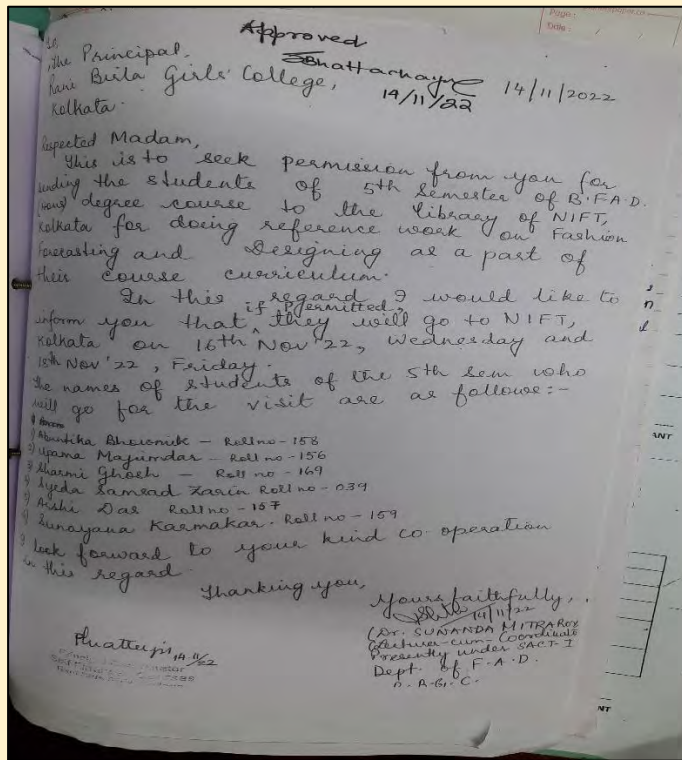 Page:
Date:
Approved
SBhattacharya
14/11/22
14/11/2022
To
The Principal.
Rani Birla Girls' College,
Kolkata.
Respected Madam,
This is to seek permission from you for
sending the students of 5th Semester of B.F.A.D.
(Hons) degree course to the library of NIFT,
Kolkata for doing reference work on Fashion
Forecasting and Designing as a part of
their course curriculum.
In this regard I would like to
inform you that if permitted, they will go to NIFT,
Kolkata on 16th Nov '22, Wednesday and
18th Nov '22, Friday.
The names of students of the 5th Sem who
will go for the visit are as follows:-
Abantika Bhowmik - Roll no - 158
Upama Majumdar - Roll no - 156
Sharmi Ghosh - Roll no - 169
Syeda Samrad Zarin Roll no - 039
Aishi Das Roll no - 157
Sunayana Karmakar. Roll no - 159
I look forward to your kind co-operation
in this regard.
Thanking you,
Yours faithfully,
14/11/22
(Dr. SUNANDA MITRA ROY
Lecturer-cum-Coordinator
Presently under SACT-I
Dept. of F.A.D.
R.B.G.C.
PChatterjee 14.11/22
ANT
NT